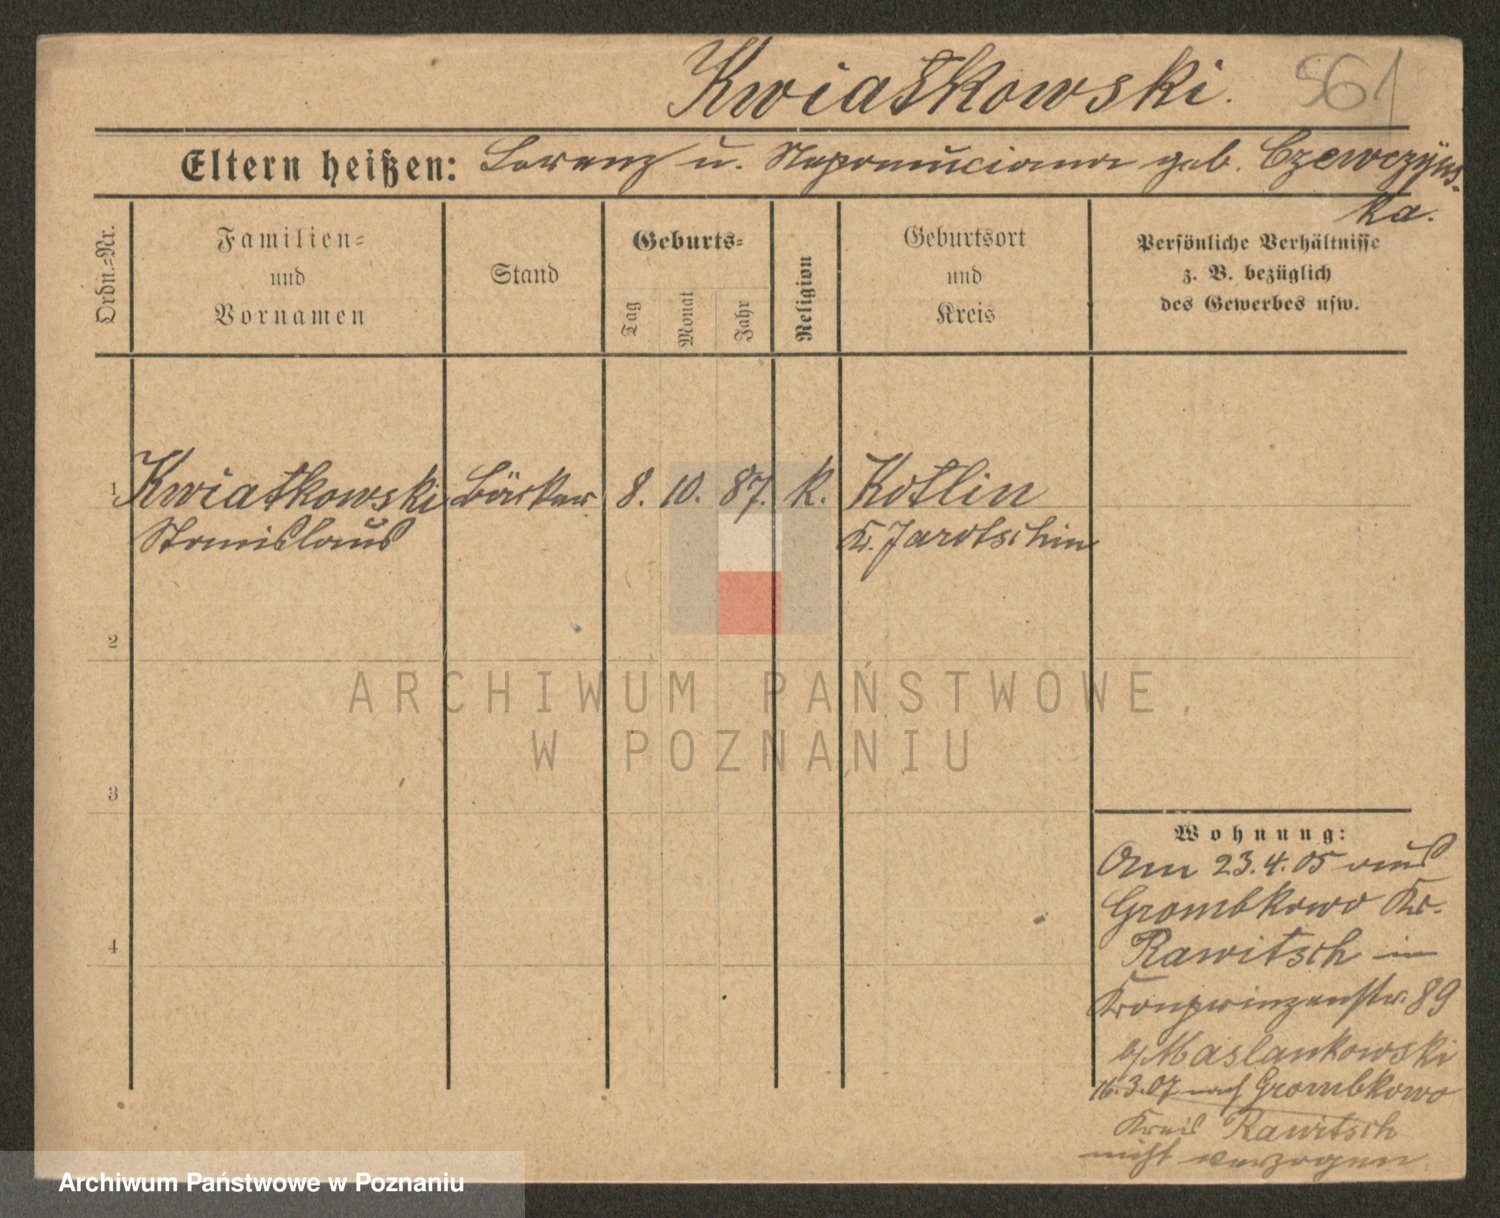 Kwiatkowski. 561
Eltern heißen: Lorenz u. Nepomuciana geb. Czewczyńs-
ka.
Ordn.-Nr.
Familien-
und
Vornamen
Stand
Geburts-
Tag
Monat
Jahr
Religion
Geburtsort
und
Kreis
Persönliche Verhältnisse
z. B. bezüglich
des Gewerbes usw.
1 Kwiatkowski Bäcker 8. 10. 87. K. Kotlin
Stanislaus Kr. Jarotschin
2
3
4
Wohnung:
Am 23.4.05 aus
Grombkowo Kr.
Rawitsch in
Kronprinzenstr. 89
b/ Maslankowski
16.3.07 nach Grombkowo
Kreis Rawitsch
nicht verzogen
ARCHIWUM PAŃSTWOWE
W POZNANIU
Archiwum Państwowe w Poznaniu